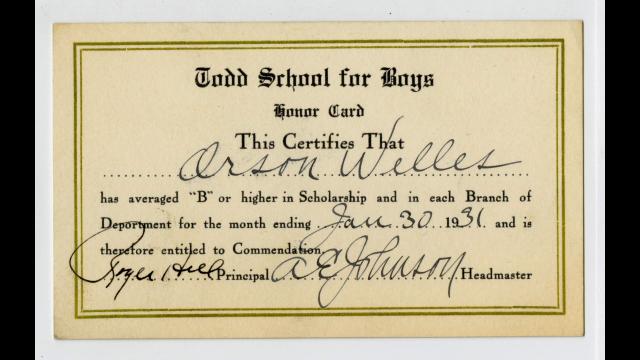 Todd School for Boys
Honor Card
This Certifies That
Orson Welles
has averaged "B" or higher in Scholarship and in each Branch of
Department for the month ending Jan. 30 1931 and is
therefore entitled to Commendation.
Roger Hill Principal A E Johnson Headmaster